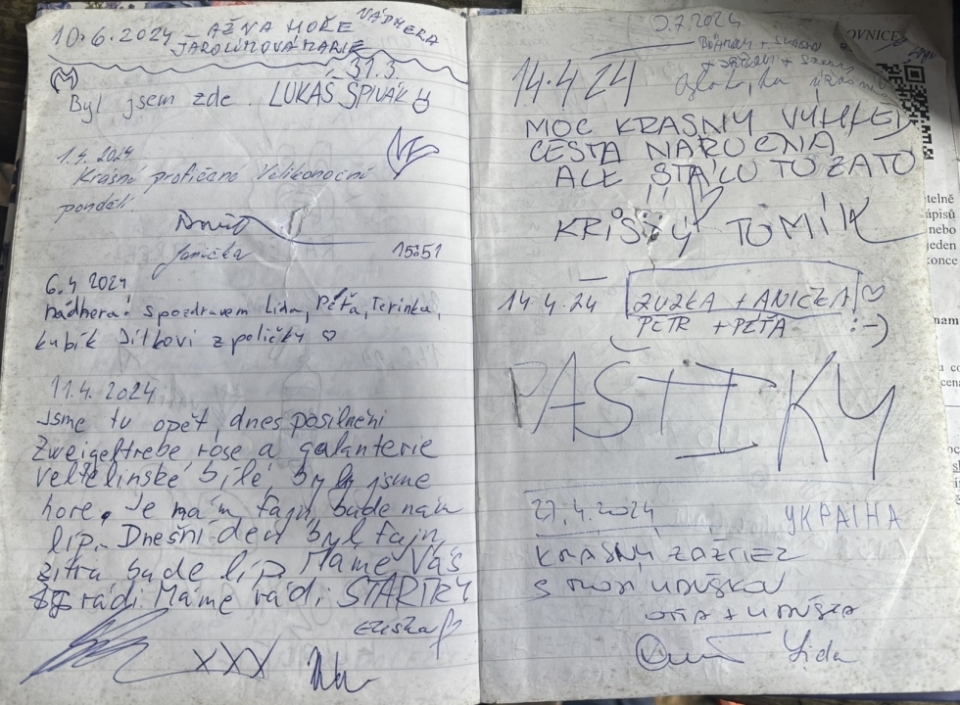 10.6.2024 – AŽ NA HOŘE NÁDHERA
JAROLÍMOVÁ MARIE
31.3.
Byl jsem zde. LUKÁŠ SPIVÁK
1.4.2024
Krásné prožičené Velikonoční
pondělí.
Janička 15:51
6.4 2024
nádhera! s pozdravem Lída, Péťa, Terinka,
kubík Jílkovi z poličky ♡
11.4.2024
Jsme tu opět, dnes posilněni
Zweigeltrebe rose a galanterie
veltelínské bílé, byly jsme
hore. Je nám fajn, bude nám
líp. Dnešní den byl fajn,
zítra bude líp Máme Vás
rádi Máme rádi STARTKY
Eliška
XXX
3.7.2024
14.4 24
MOC KRASNY VÝHLED
CESTA NAROČNA
ALE STÁLO TO ZATO
!!
KRIŠTY TOMÍK
14.4.24 ZUZKA + ANIČKA ♡
PETR + PEŤA :-)
PAŠTIKY
27.4.2024 УКРАЇНА
KRASNY ZÁŽITEK
S
Lída
OVNICE
telně
ápisů
nebo
jeden
konce
nam